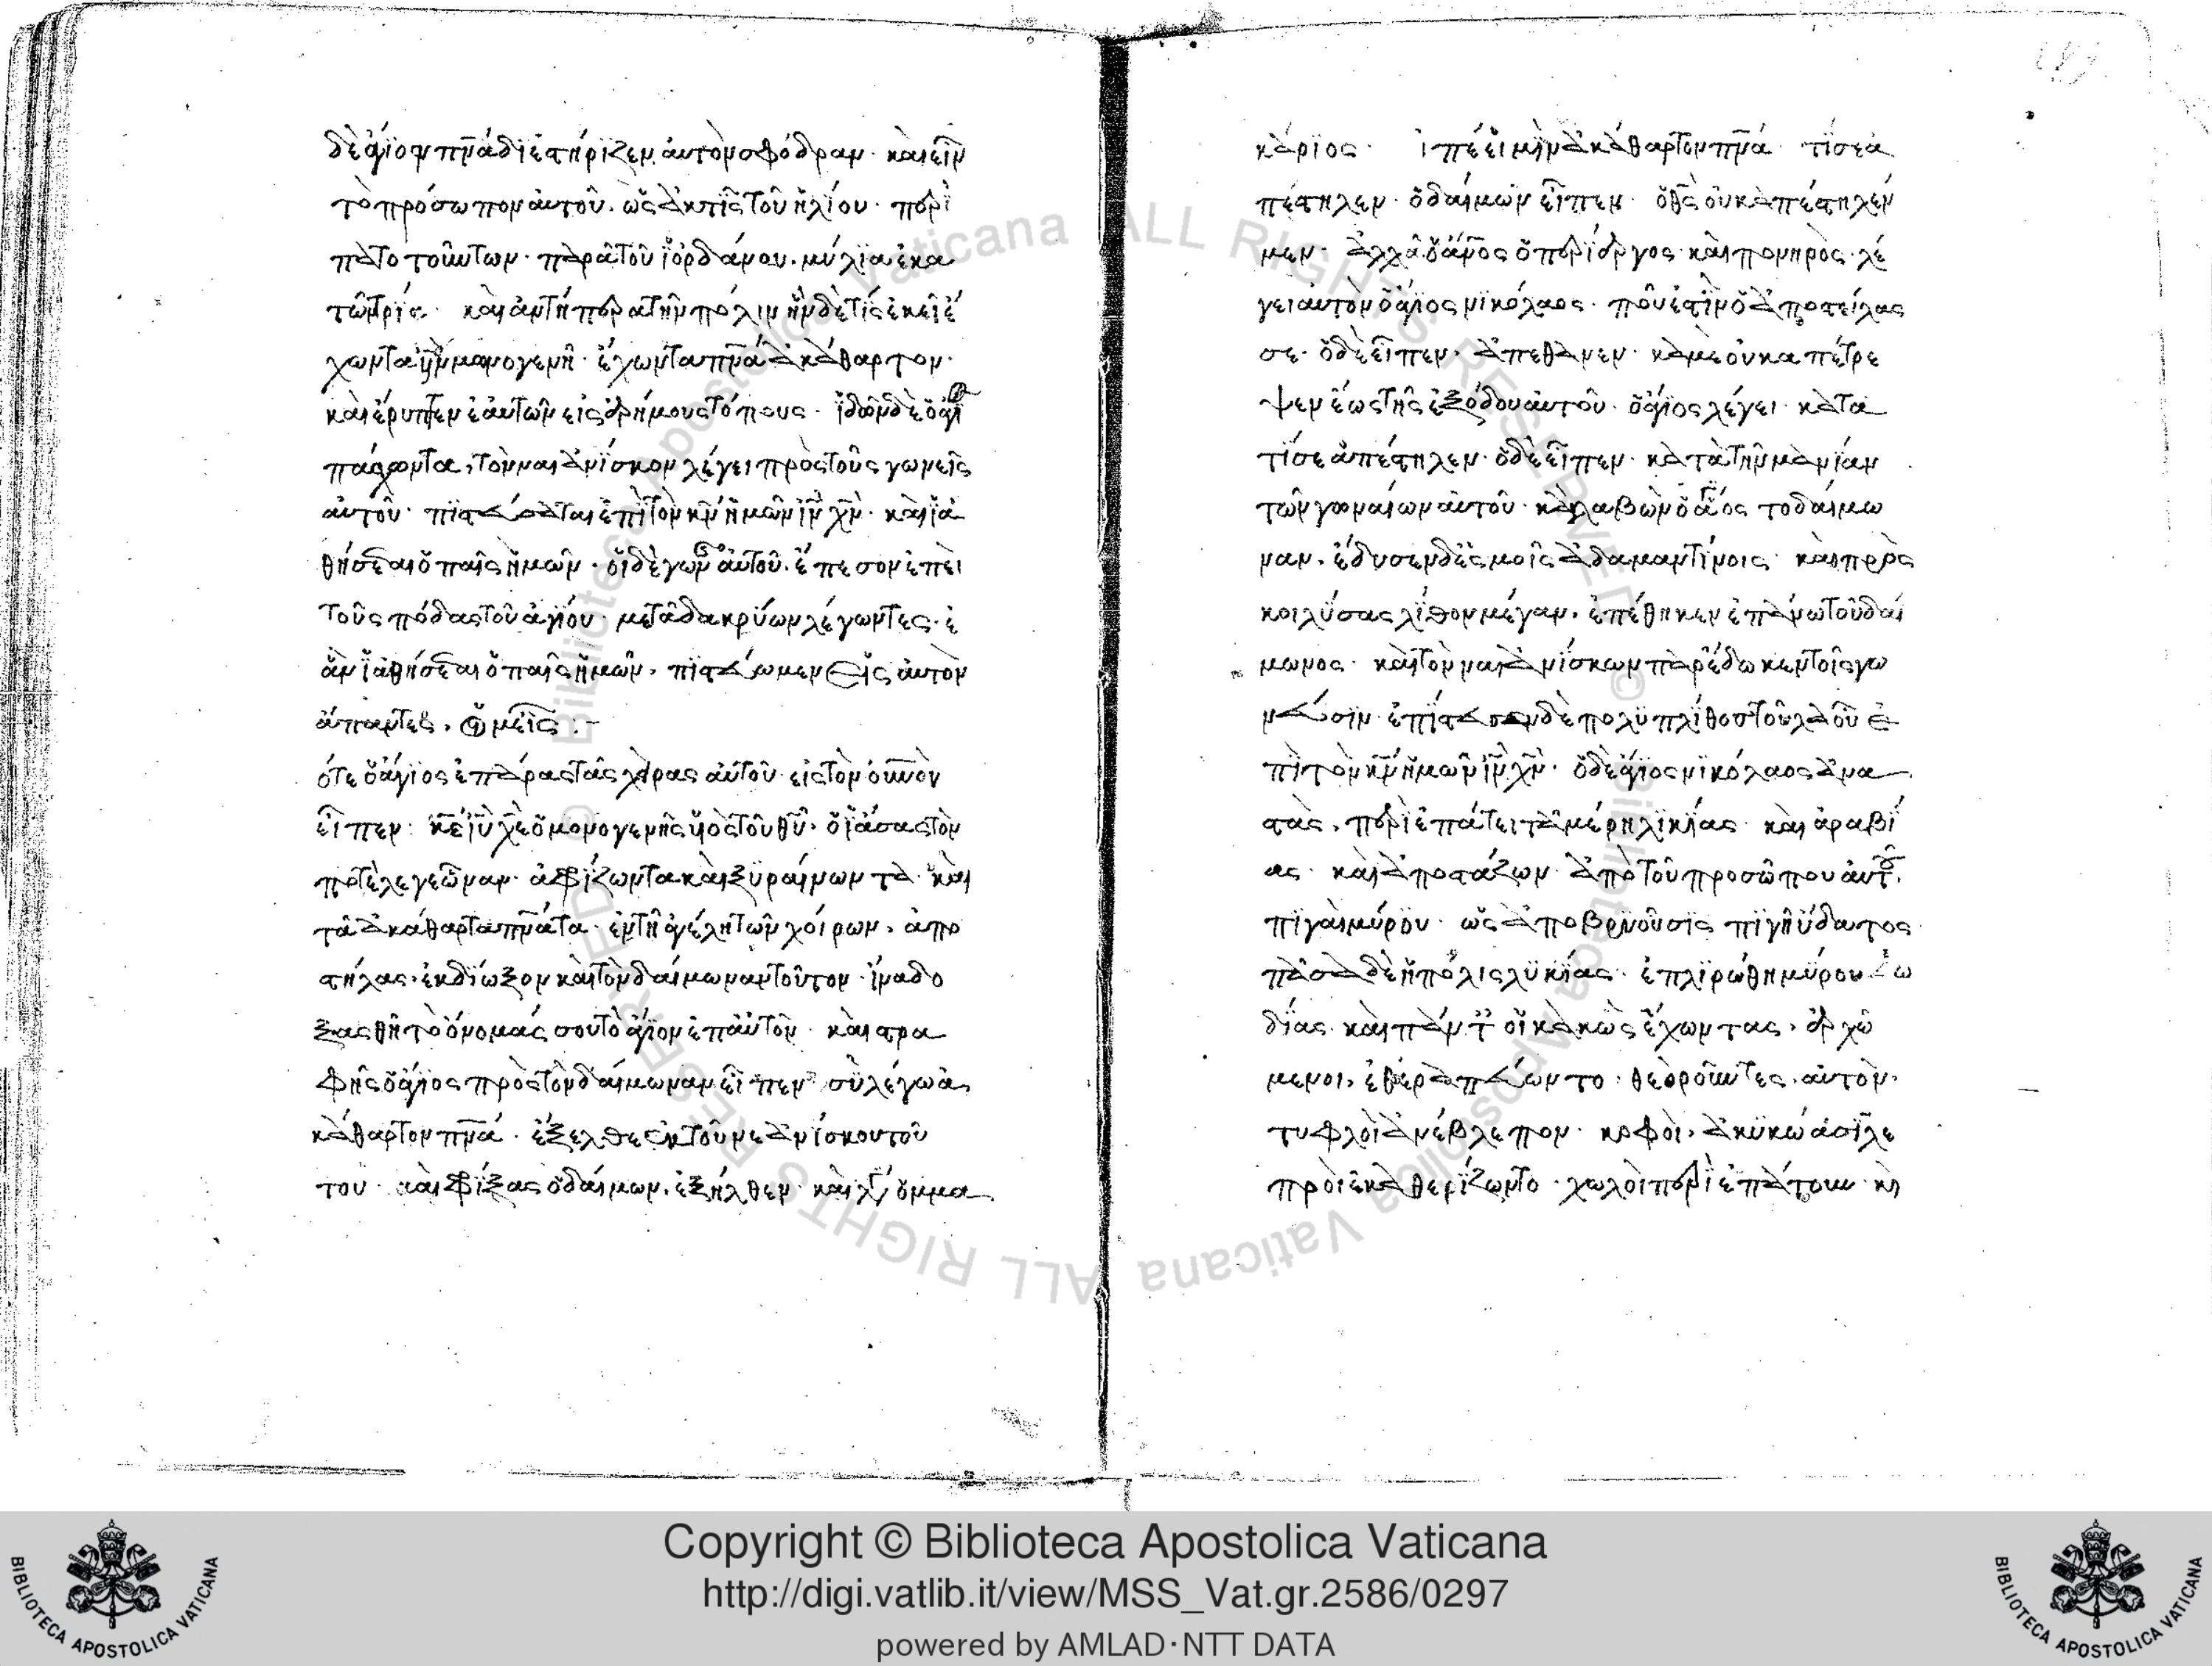 δὲ ἅγιον πνᾶ διεστήριζεν αὐτὸν σφόδραν· καὶ εἶν
τὸ πρόσωπον αὐτοῦ· ὡς ἀκτὶς τοῦ ἡλίου· περὶ
πατοτούντων· παρὰ τοῦ ἰορδάνου· μύλια ἑκα
καὶ ἀντιπέρα τὴν πόλιν ἦν δὲ τίς ἐκεῖ ἔ
χωντα ὑν μονογενῆ· ἔχωντα πνᾶ ἀκάθαρτον·
καὶ ἔρυπτεν ἑαυτῶν εἰς ἐρήμους τόπους· ἰδὼν δὲ ὁ ἅγι
πάσχοντα, τὸν ναιανίσκον λέγει πρὸς τοὺς γωνεῖς
αὐτοῦ· πιστεύσαται ἐπὶ τὸν κν ἡμῶν ιν χν· καὶ ἰα
θήσεται ὁ παῖς ἡμῶν· οἱ δὲ γων αὐτοῦ· ἔπεσον ἐπεὶ
τοὺς πόδας τοῦ ἁγίου· μετὰ δακρύων λέγωντες· ἐ
ὰν ἰαθήσεται ὁ παῖς ἡμῶν, πιστεύωμεν εἰς αὐτὸν
ἅπαντες, ἡμεῖς :–
ότε ὁ ἅγιος ἐπάρας τὰς χείρας αὐτοῦ εἰς τὸν οὐνὸν
εἶπεν· κε ιυ χε ὁ μονογενὴς υἱὸς τοῦ θυ· ὁ ἰάσας τὸν
ποτὲ λεγεῶναν· ἀφρίζωντα καὶ ξυραίνωντα· καὶ
τὰ ἀκάθαρτα πνᾶτα· ἐν τῇ ἀγέλη τῶν χοίρων, ἀπο
στήλας· ἐκδίωξον καὶ τὸν δαίμωναν τοῦτον· ἵνα δο
ξασθῇ τὸ ὄνομάς σου τὸ ἅγιον ἐπ αὐτὸν· καὶ στρα
φῆς ὁ ἅγιος πρὸς τὸν δαίμωναν εἶπεν· σὺ λέγω ἀ
κάθαρτον πνᾶ· ἔξελθε ἐκ τοῦ νεανίσκου τοῦ
του· καὶ φρίξας ὁ δαίμων, ἐξήλθεν· καὶ λέγει ὄνομα
κάριος· ἱπέ εἰμὶν ἀκάθαρτον πνᾶ· τί σε ἀ
πέστηλεν· ὁ δαίμων εἶπεν· ὁ θς οὐκ ἀπέστηλέν
μεν· ἀλλὰ ὁ ἄνος ὁ περίεργος· καὶ πονηρὸς· λέ
γει αὐτὸν ὁ ἅγιος νικόλαος· ποῦ ἐστὶν ὁ ἀποστείλας
σε· ὁ δὲ εἶπεν, ἀπέθανεν· κἀμὲ οὐκ απέτρε
ψεν ἕως τῆς ἐξόδου αὐτοῦ· ὁ ἅγιος λέγει· κατὰ
τί σε ἀπέστηλεν· ὁ δὲ εἶπεν· κατὰ τὴν μανίαν
τῶν γοναίων αὐτοῦ· καὶ λαβὼν ὁ ἅγιος το δαίμω
ναν, ἔδυσεν δὲς μοῖς ἀδαμαντίνοις· καὶ προς
κοιλύσας λίθον μέγαν, ἐπέθηκεν ἐπάνω τοῦ δαί
μωνος· καὶ τὸν ναιανίσκων παρέδωκεν τοῖς γω
νεύσιν· ἐπίστευσαν δὲ πολὺ πλίθος τοῦ λαοῦ ἐ
πὶ τὸν κν ἡμῶν ιν χν· ὁ δὲ ἅγιος νικόλαος ἀνα
στὰς, περιεπάτει τὰ μέρη λικίας· καὶ ἀραβί
ας· καὶ ἀποστάζων ἀπὸ τοῦ προσώπου αὐτ,
πιγαὶ μύρου· ὡς πιγὴ ὕδατος
πᾶσα δὲ ἡ πόλις λυκίας· ἐπλιρώθη μύρου εὐω
δίας· καὶ πάντ οἱ κακῶς ἔχωντας, ἐρχῶ
μενοι, ἐθεραπεύωντο· θεοροῦντες, αὐτὸν·
τυφλοὶ ἀνέβλεπον· κοφοὶ, ἀκύκωάσι λε
προὶ ἐκαθερίζωντο· χωλοὶ περιεπάτουν· κὴ
Copyright © Biblioteca Apostolica Vaticana
http://digi.vatlib.it/view/MSS_Vat.gr.2586/0297
powered by AMLAD·NTT DATA
BIBLIOTECA APOSTOLICA VATICANA
BIBLIOTECA APOSTOLICA VATICANA